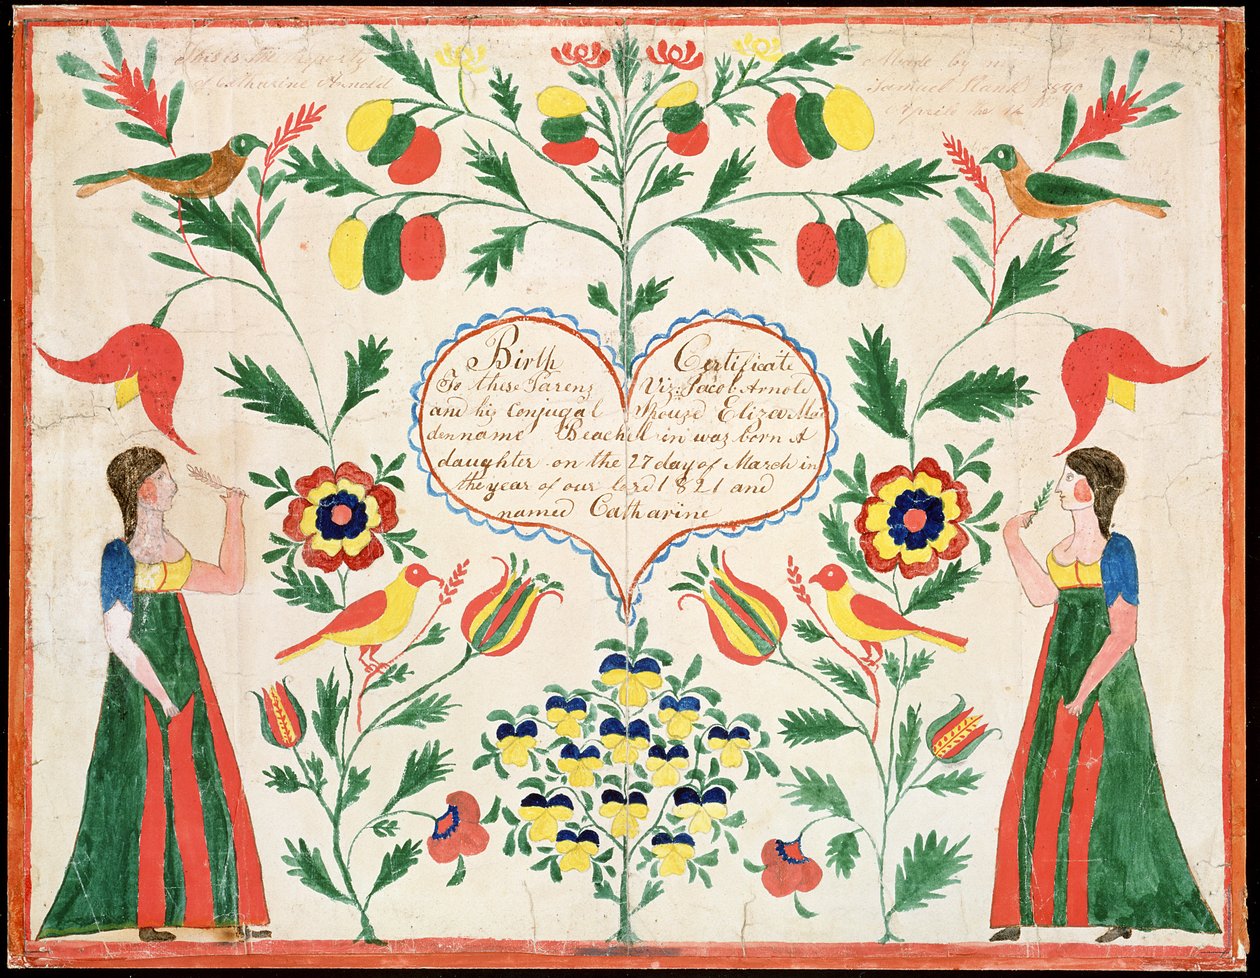 This is the Property
of Catharine Arnold
Made by me
Samuel 1840
April the
Birth Certificate
To these Parenz Viz. Jacob Arnold
and his Conjugal Spouze Eliza Mai
denname Beachell in waz born A
daughter on the 27 day of March in
the year of our lord 1821 and
named Catharine